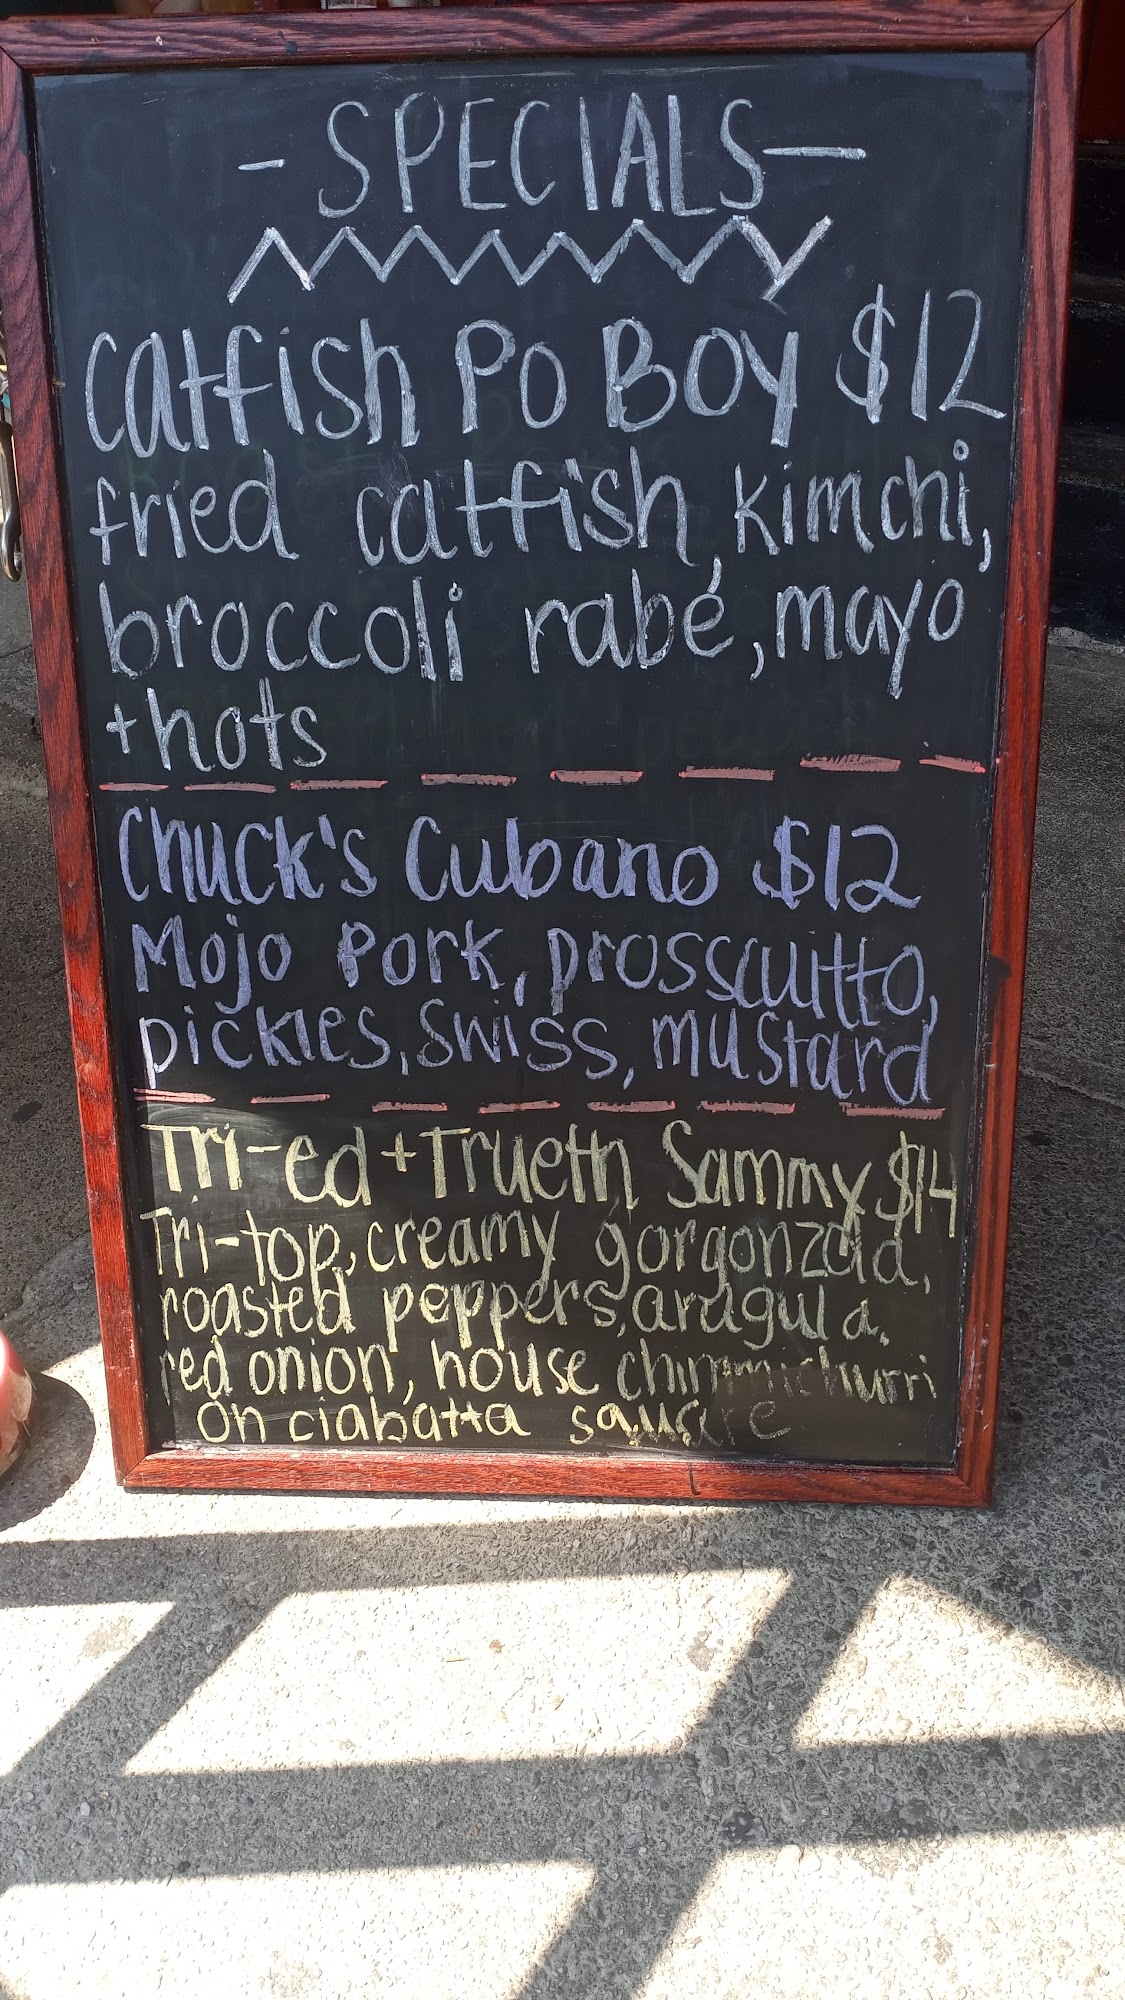 - SPECIALS —
Catfish Po Boy $12
fried catfish, kimchi,
broccoli rabé, mayo
+hots
Chuck's Cubano $12
Mojo Pork, prosscuitto,
pickles, Swiss, mustard
Tri-ed + Trueth Sammy $14
Tri-top, creamy gorgonzola,
roasted peppers, arugula,
red onion, house chimmichurri
on ciabatta square